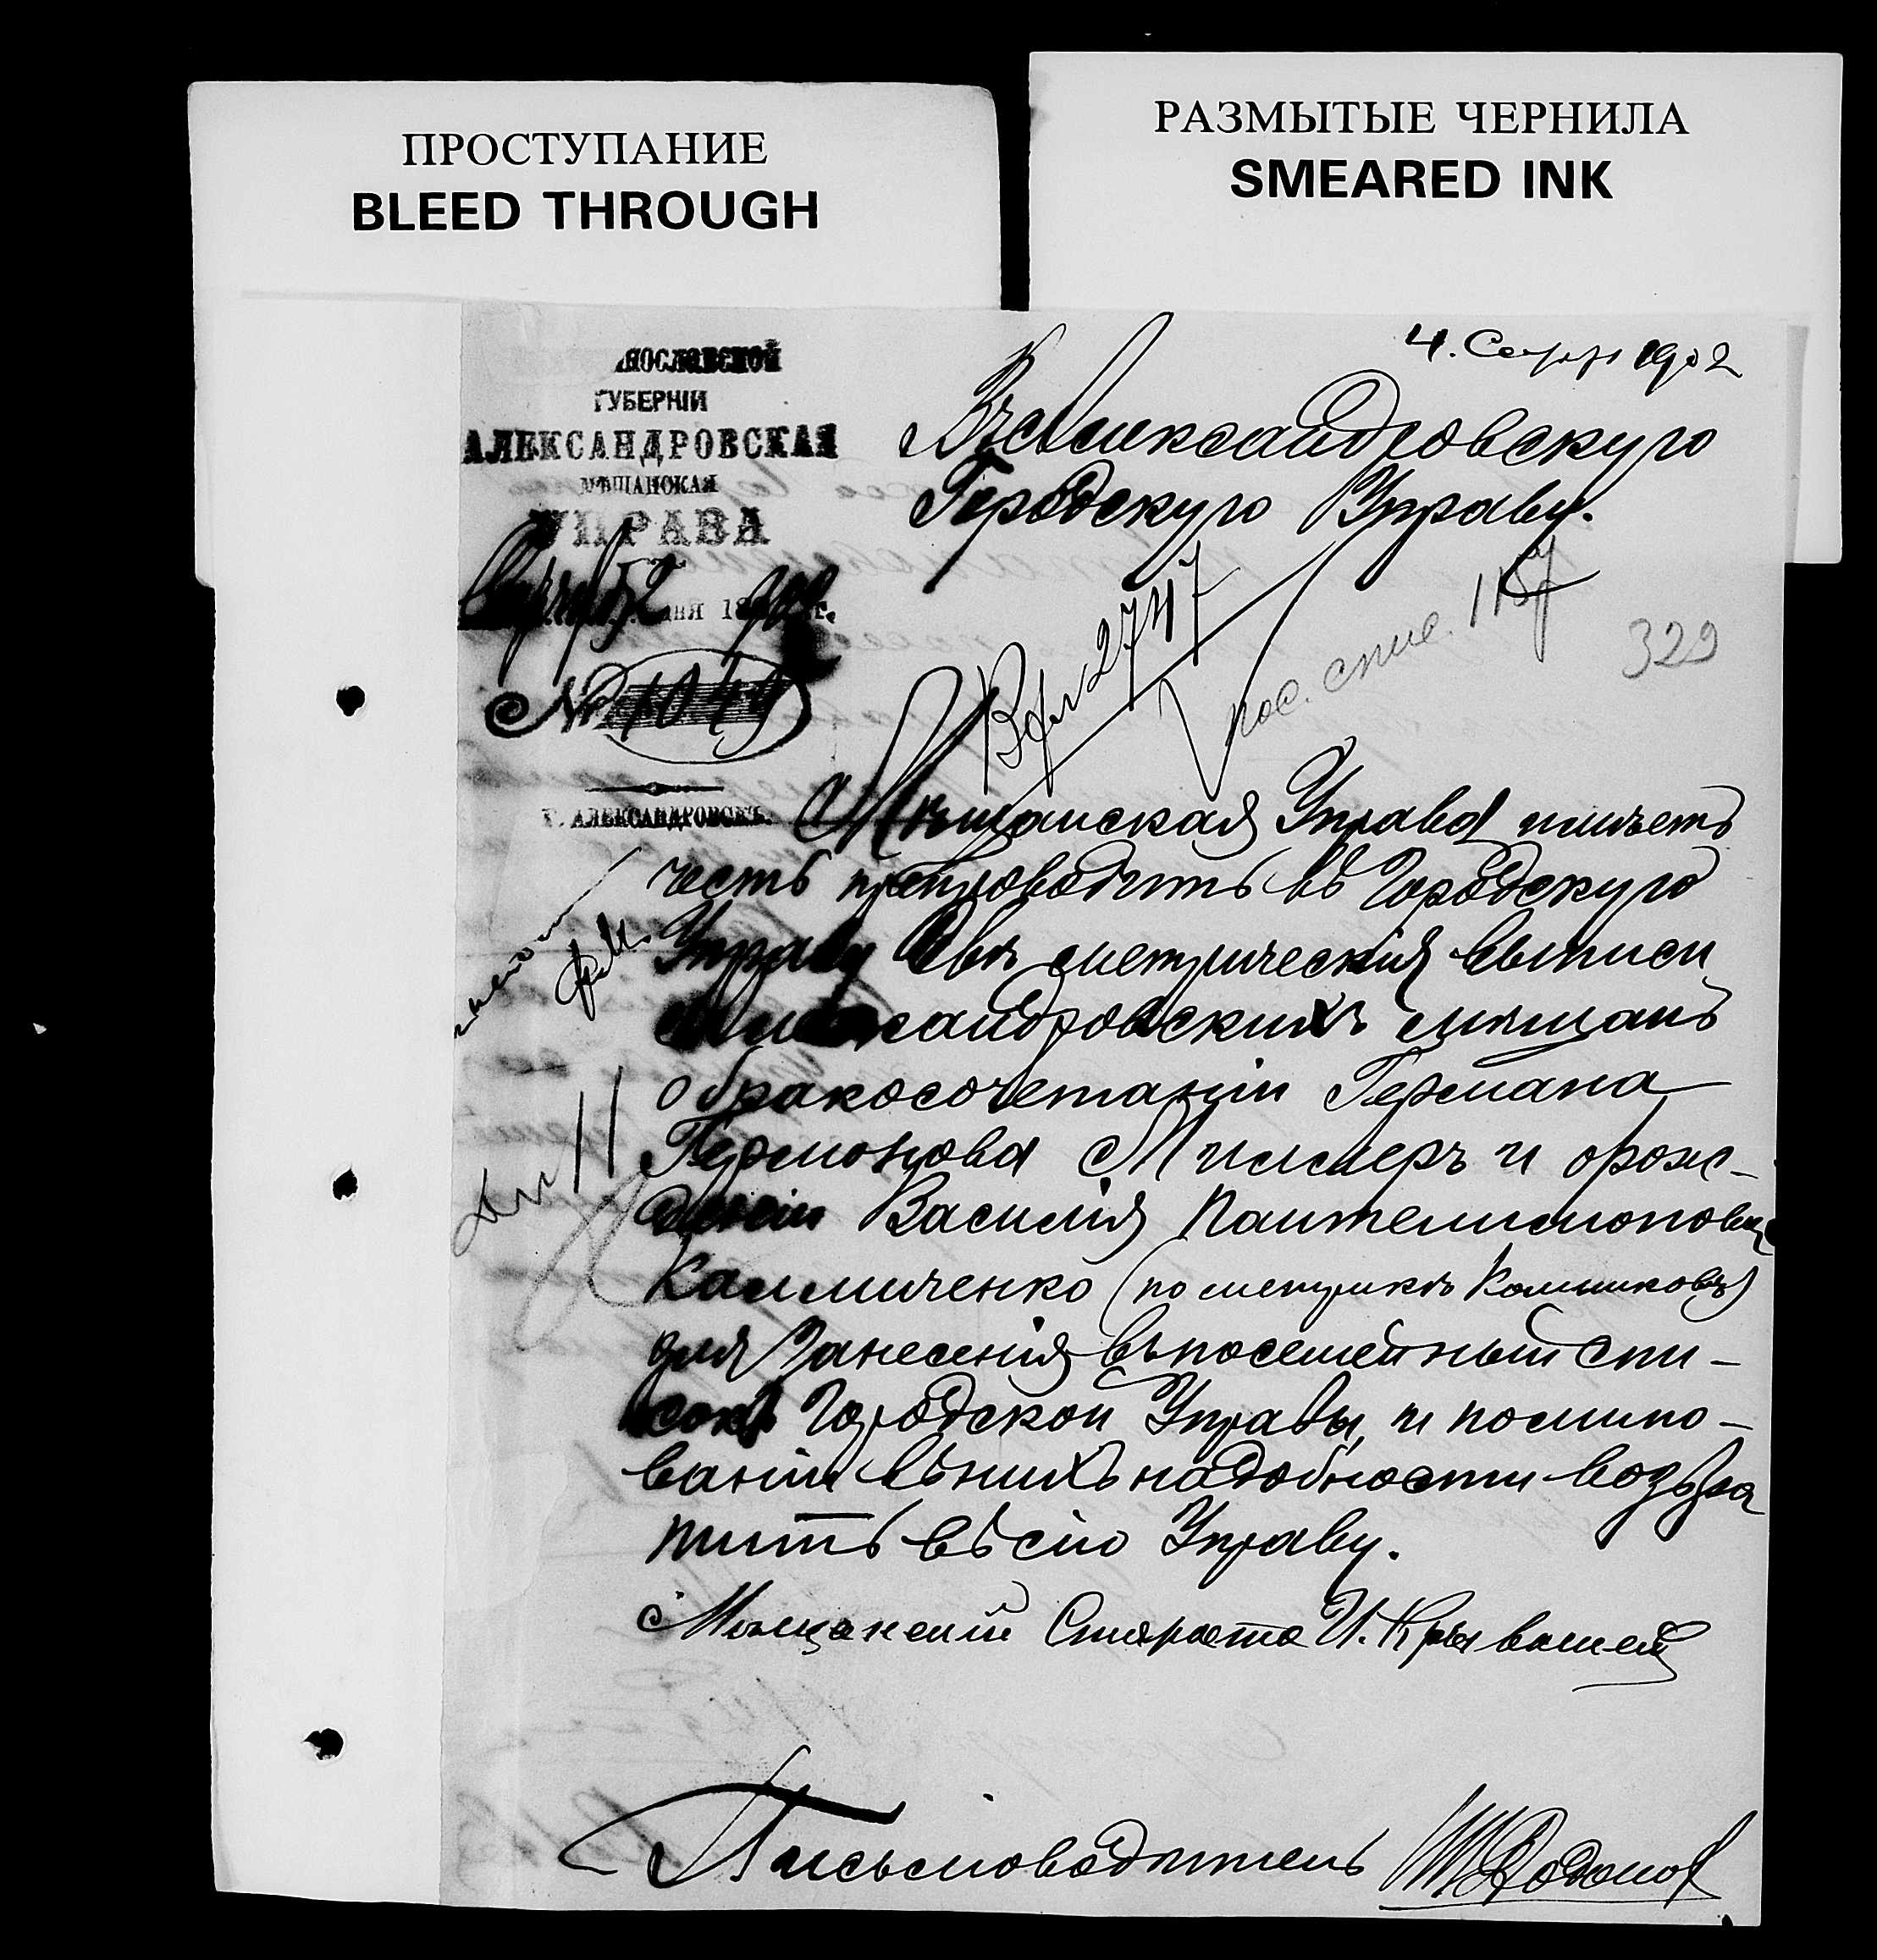 ПРОСТУПАНИЕ
BLEED THROUGH
РАЗМЫТЫЕ ЧЕРНИЛА
SMEARED INK
4. Сент 1902
НОСЛАВСКОЙ
ГУБЕРНІИ
АЛЕКСАНДРОВСКАЯ
МѢЩАНСКАЯ
УПРАВА
2 дня 18 г.
№ 1049
Г. АЛЕКСАНДРОВСКЪ.
Въ Александровскую
Городскую Управу.
Вх 2747
пос. спис. 1157
329
Мѣщанская Управа имѣетъ
честь препроводить въ Городскую
Управу двѣ метрическія выписи
Александровскихъ мѣщанъ
о бракосочетаніи Германа
Германова Миллеръ и орож-
деніи Василія Пантелимонова
Калмиченко (по метрикѣ Калмыковъ)
для занесенія въ посемейный спи-
сокъ Городской Управы, и по мино-
ваніи въ нихъ надобности возвра
тить въ сію Управу.
Мѣщанскій Староста И.
Письмоводитель